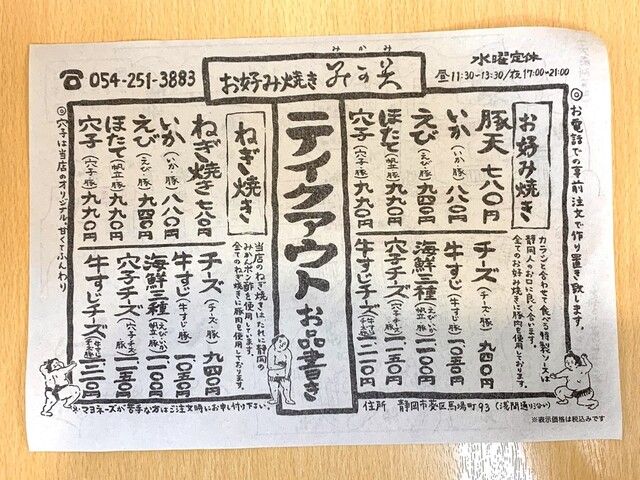 ☎ 054-251-3883
みかみ
お好み焼き みかみ
水曜定休
昼11:30-13:30/夜17:00-21:00
◎お電話での事前注文で作り置き致します。
お好み焼き
カラシと合わせて食べる特製ソースは
静岡人のお口に良く合います。
全てのお好み焼きに豚肉を使用しております。
豚天 七八〇円
いか(いか・豚) 八八〇円
えび(えび・豚) 九四〇円
ほたて(帆立・豚) 九九〇円
穴子(穴子・豚) 九九〇円
チーズ(チーズ・豚) 九四〇円
牛すじ(牛すじ・豚) 一〇五〇円
海鮮三種 一一〇〇円
穴子チーズ 一一五〇円
牛すじチーズ 一二一〇円
テイクアウト お品書き
ねぎ焼き
当店のねぎ焼きはたれに静岡の
みかんポン酢を使用しています。
全てのねぎ焼きに豚肉を使用しております。
ねぎ焼き 七八〇円
いか(いか・豚) 八八〇円
えび(えび・豚) 九四〇円
ほたて(帆立・豚) 九九〇円
穴子(穴子・豚) 九九〇円
チーズ(チーズ・豚) 九四〇円
牛すじ(牛すじ・豚) 一〇五〇円
海鮮三種 一一〇〇円
穴子チーズ 一一五〇円
牛すじチーズ 一二一〇円
◎穴子は当店のオリジナル。甘くてふんわり
※マヨネーズが苦手な方はご注文時にお申し付け下さい。
住所 静岡市葵区馬場町93(浅間通り沿い)
※表示価格は税込みです